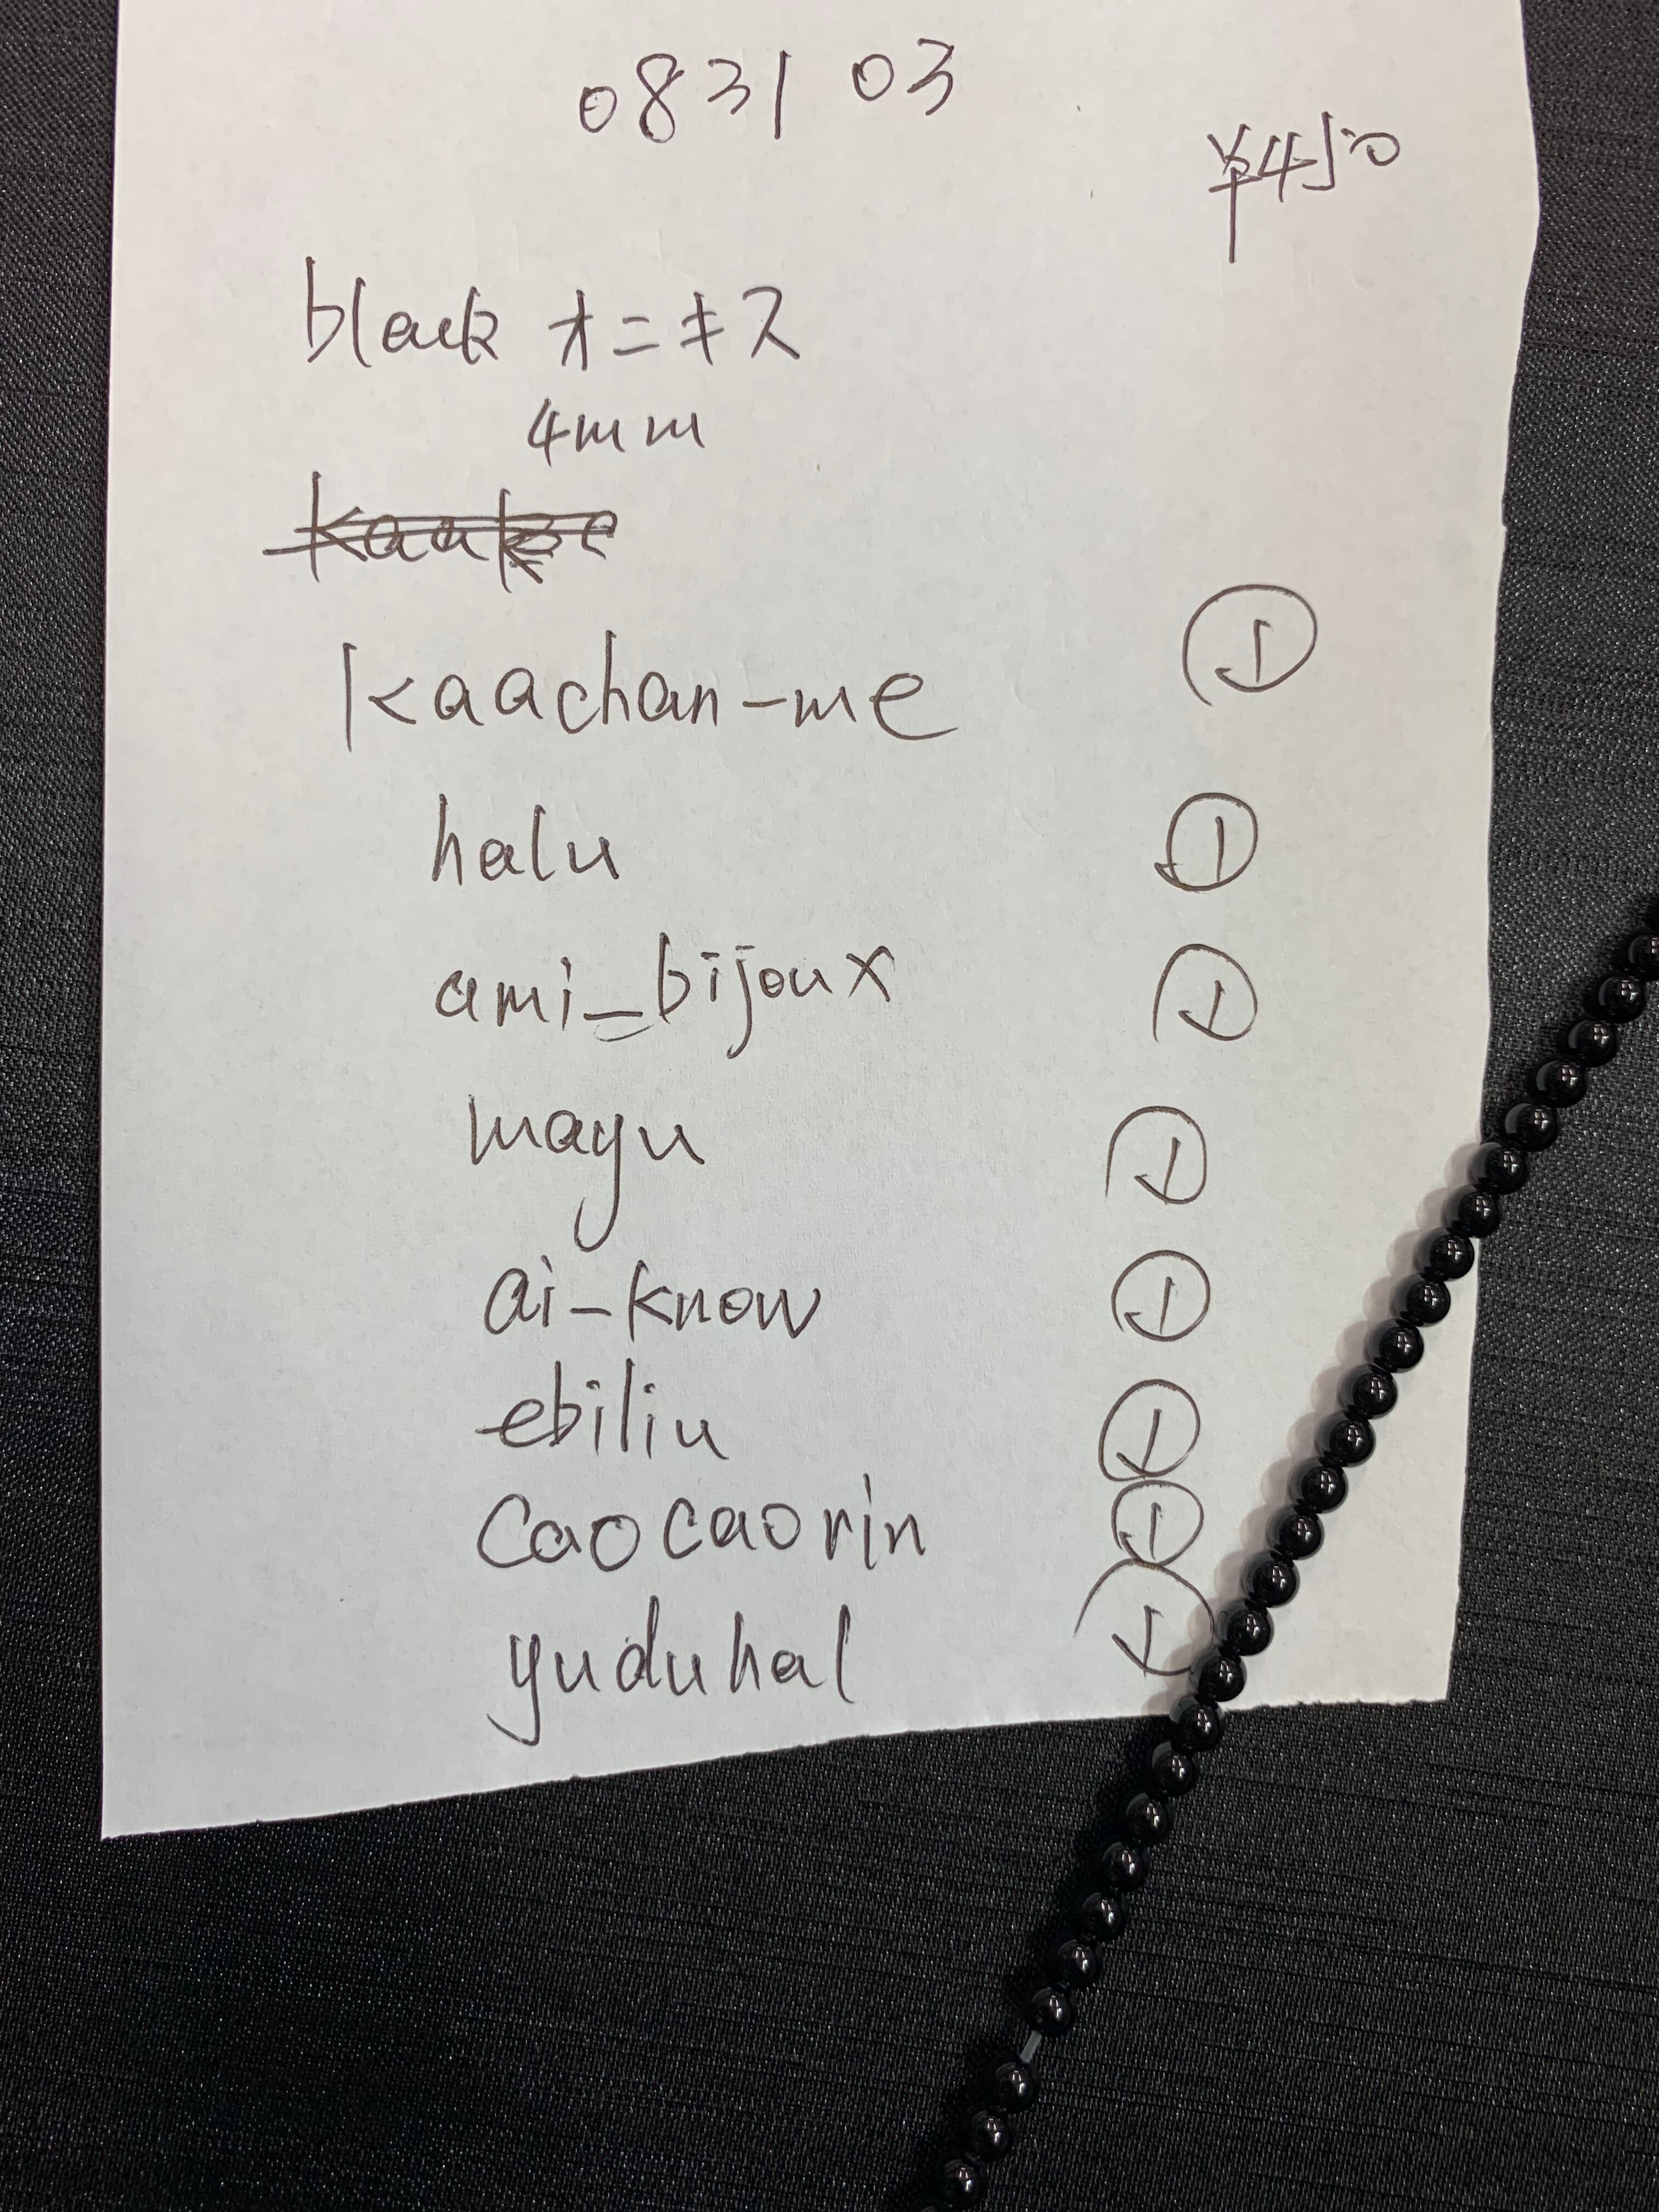 0831 03
¥450
black オニキス
4mm
kaachan-me ①
halu ①
ami_bijoux ①
mayu ①
ai-know ①
ebiliu ①
caocaorin ①
yuduhal ①